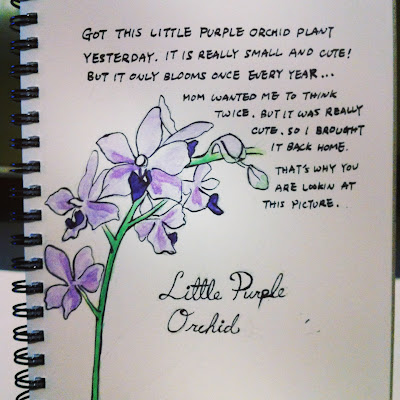 GOT THIS LITTLE PURPLE ORCHID PLANT
YESTERDAY. IT IS REALLY SMALL AND CUTE!
BUT IT ONLY BLOOMS ONCE EVERY YEAR...
MOM WANTED ME TO THINK
TWICE. BUT IT WAS REALLY
CUTE. SO I BROUGHT
IT BACK HOME.
THAT'S WHY YOU
ARE LOOKIN AT
THIS PICTURE.
Little Purple
Orchid